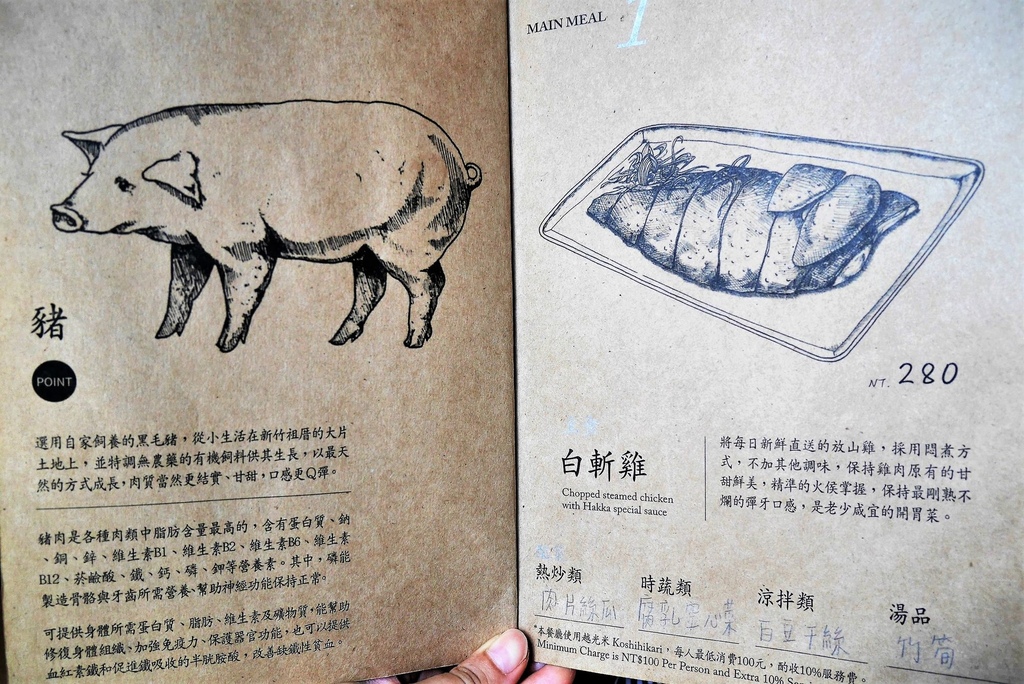 豬
POINT
選用自家飼養的黑毛豬，從小生活在新竹祖厝的大片
土地上，並特調無農藥的有機飼料供其生長，以最天
然的方式成長，肉質當然更結實、甘甜，口感更Q彈。
豬肉是各種肉類中脂肪含量最高的，含有蛋白質、鈉
、銅、鋅、維生素B1、維生素B2、維生素B6、維生素
B12、菸鹼酸、鐵、鈣、磷、鉀等營養素。其中，磷能
製造骨骼與牙齒所需營養、幫助神經功能保持正常。
可提供身體所需蛋白質、脂肪、維生素及礦物質，能幫助
修復身體組織、加強免疫力、保護器官功能，也可以提供
血紅素鐵和促進鐵吸收的半胱胺酸，改善缺鐵性貧血。
MAIN MEAL
1
NT. 280
白斬雞
Chopped steamed chicken
with Hakka special sauce
將每日新鮮直送的放山雞，採用悶煮方
式，不加其他調味，保持雞肉原有的甘
甜鮮美，精準的火侯掌握，保持最剛熟不
爛的彈牙口感，是老少咸宜的開胃菜。
熱炒類
肉片絲瓜
時蔬類
腐乳空心菜
涼拌類
百豆干絲
湯品
竹筍
*本餐廳使用越光米 Koshihikari，每人最低消費100元，酌收10%服務費。
Minimum Charge is NT$100 Per Person and Extra 10%